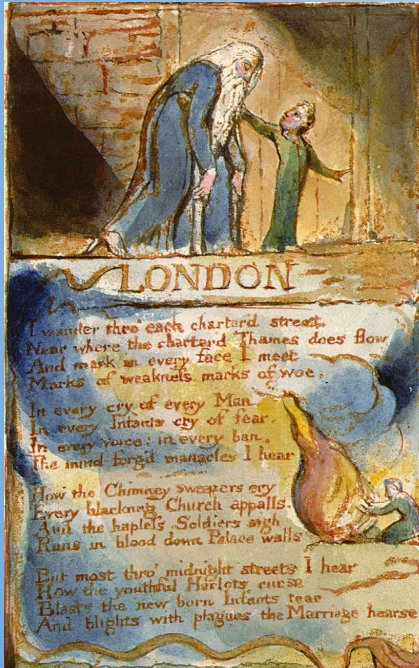 LONDON
I wander thro' each charter'd street,
Near where the charter'd Thames does flow
And mark in every face I meet
Marks of weakness, marks of woe.
In every cry of every Man.
In every Infants cry of fear.
In every voice: in every ban.
The mind-forg'd manacles I hear
How the Chimney-sweepers cry
Every blackning Church appalls.
And the hapless Soldiers sigh
Runs in blood down Palace walls
But most thro' midnight streets I hear
How the youthful Harlots curse
Blasts the new-born Infants tear
And blights with plagues the Marriage hearse